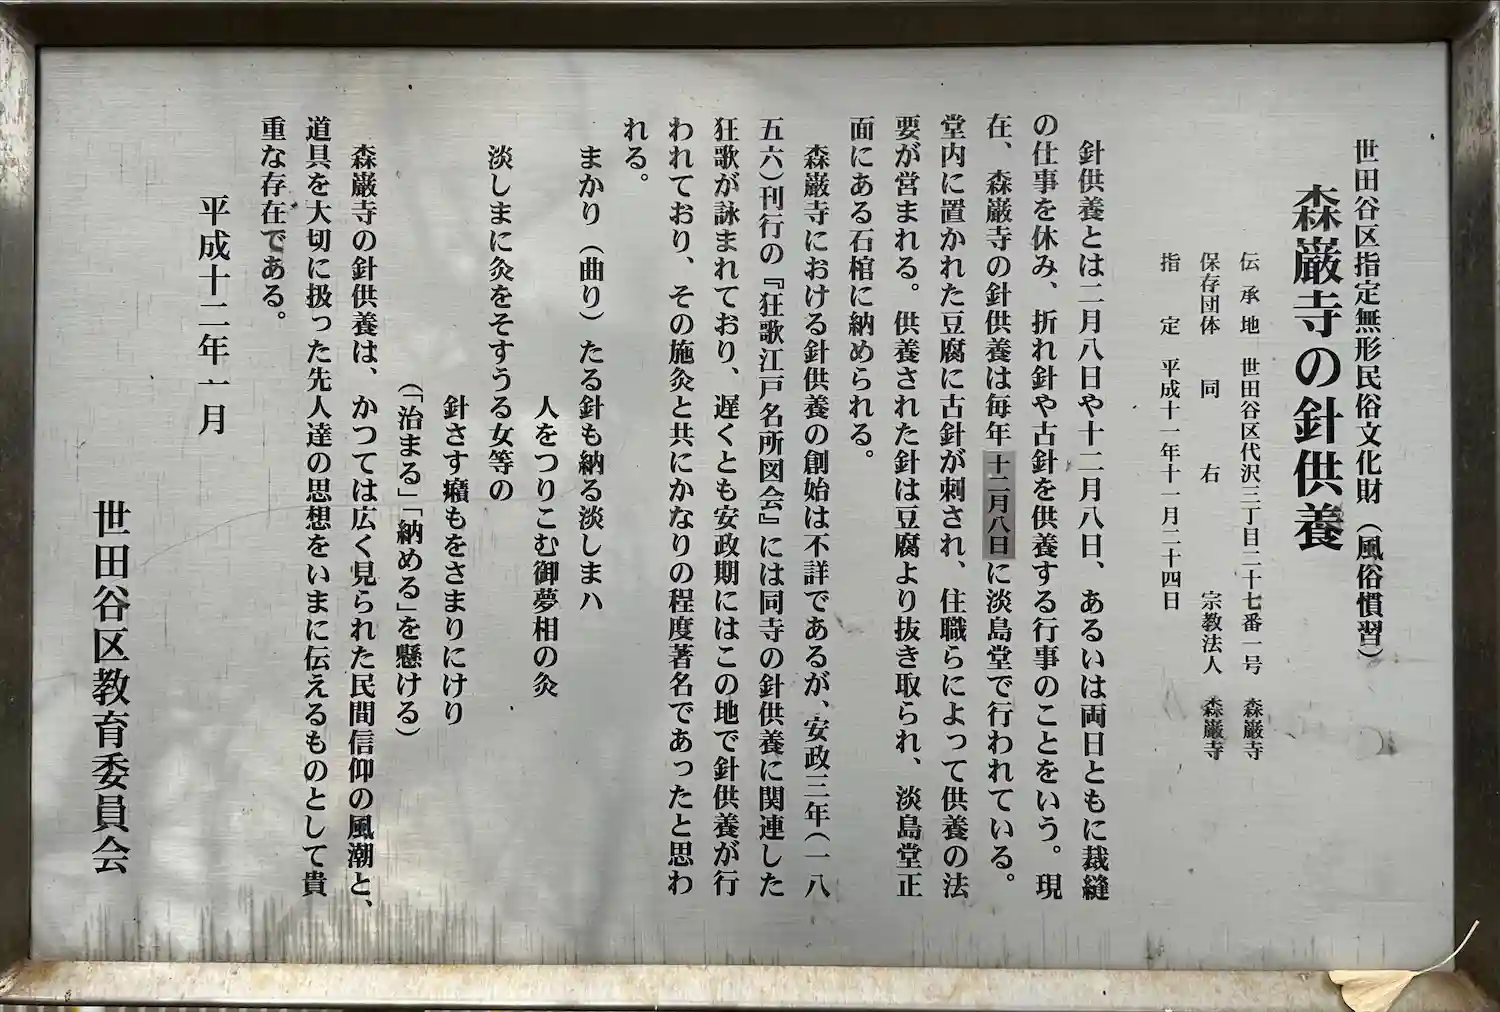 世田谷区指定無形民俗文化財（風俗慣習）
森巌寺の針供養
伝承地　世田谷区代沢三丁目二十七番一号　森巌寺
保存団体　同　右　宗教法人　森巌寺
指　定　平成十一年十一月二十四日
針供養とは二月八日や十二月八日、あるいは両日ともに裁縫
の仕事を休み、折れ針や古針を供養する行事のことをいう。現
在、森巌寺の針供養は毎年十二月八日に淡島堂で行われている。
堂内に置かれた豆腐に古針が刺され、住職らによって供養の法
要が営まれる。供養された針は豆腐より抜き取られ、淡島堂正
面にある石棺に納められる。
森巌寺における針供養の創始は不詳であるが、安政三年（一八
五六）刊行の『狂歌江戸名所図会』には同寺の針供養に関連した
狂歌が詠まれており、遅くとも安政期にはこの地で針供養が行
われており、その施灸と共にかなりの程度著名であったと思わ
れる。
まかり（曲り）たる針も納る淡しまハ
人をつりこむ御夢相の灸
淡しまに灸をそすうる女等の
針さす癪もをさまりにけり
（「治まる」「納める」を懸ける）
森巌寺の針供養は、かつては広く見られた民間信仰の風潮と、
道具を大切に扱った先人達の思想をいまに伝えるものとして貴
重な存在である。
平成十二年一月
世田谷区教育委員会